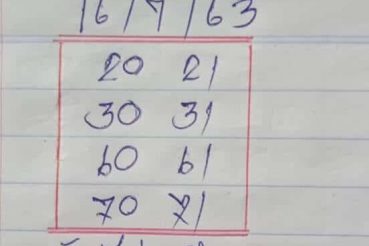 16/7/63
20 21
30 31
60 61
70 71